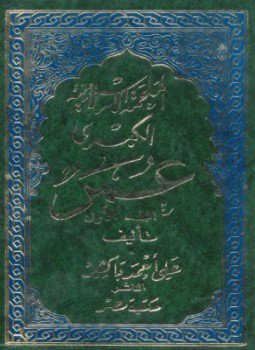 الملحمة الإسلامية
الكبرى
عمر
الجزء الأول
تأليف
علي أحمد باكثير
الناشر
مكتبة مصر